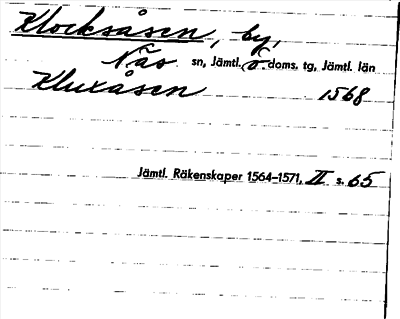 Klocksåsen, by,
Näs sn, Jämtl. ö. doms. tg, Jämtl. län
Kluxåsen 1568
Jämtl. Räkenskaper 1564-1571, II s. 65